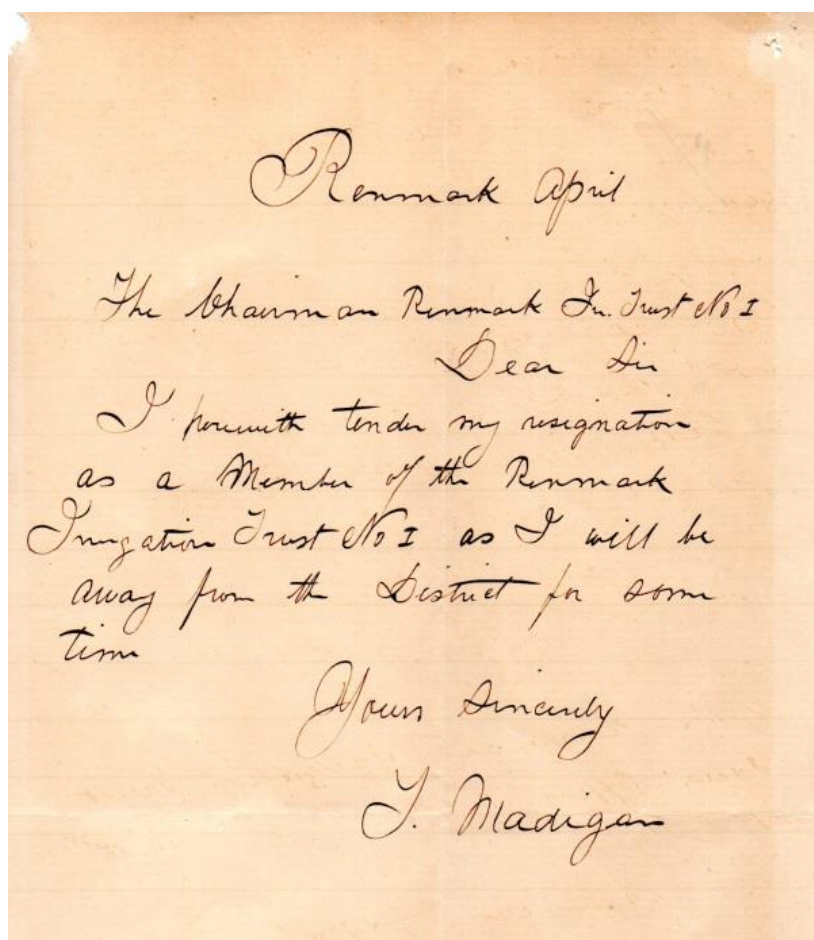 Renmark April
The Chairman Renmark Irr. Trust No I
Dear Sir
I herewith tender my resignation
as a Member of the Renmark
Irrigation Trust No I as I will be
away from the District for some
time
Yours Sincerely
T. Madigan